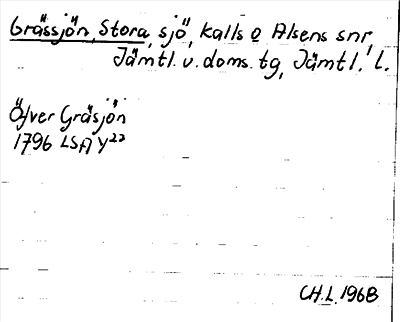 Grässjön, Stora, sjö, Kalls o Alsens snr,
Jämtl. v. doms. tg, Jämtl. l.
Öfver Gräsjön
1796 LSA Y²²
CH.L. 1968